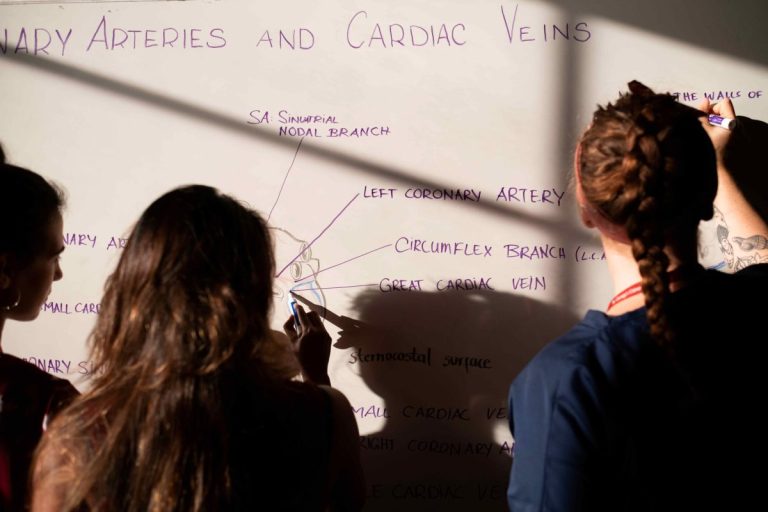 NARY ARTERIES AND CARDIAC VEINS
THE WALLS OF
SA: SINUATRIAL
NODAL BRANCH
LEFT CORONARY ARTERY
NARY AR
CIRCUMFLEX BRANCH (L.C.A
GREAT CARDIAC VEIN
MALL CAR
sternocostal surface
ONARY SIN
MALL CARDIAC VE
RIGHT CORONARY A
LE CARDIAC VE